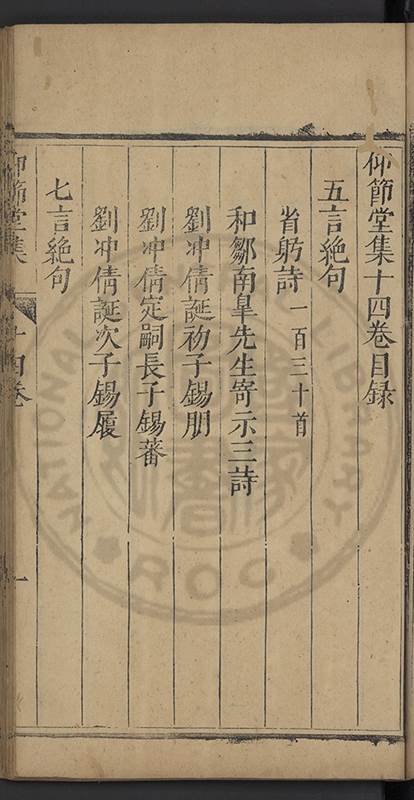 仰節堂集十四卷目錄
五言絕句
省躬詩一百三十首
和鄒南皐先生寄示三詩
劉冲倩誕初子錫朋
劉冲倩定嗣長子錫蕃
劉冲倩誕次子錫履
七言絕句
仰節堂集 十四卷 一